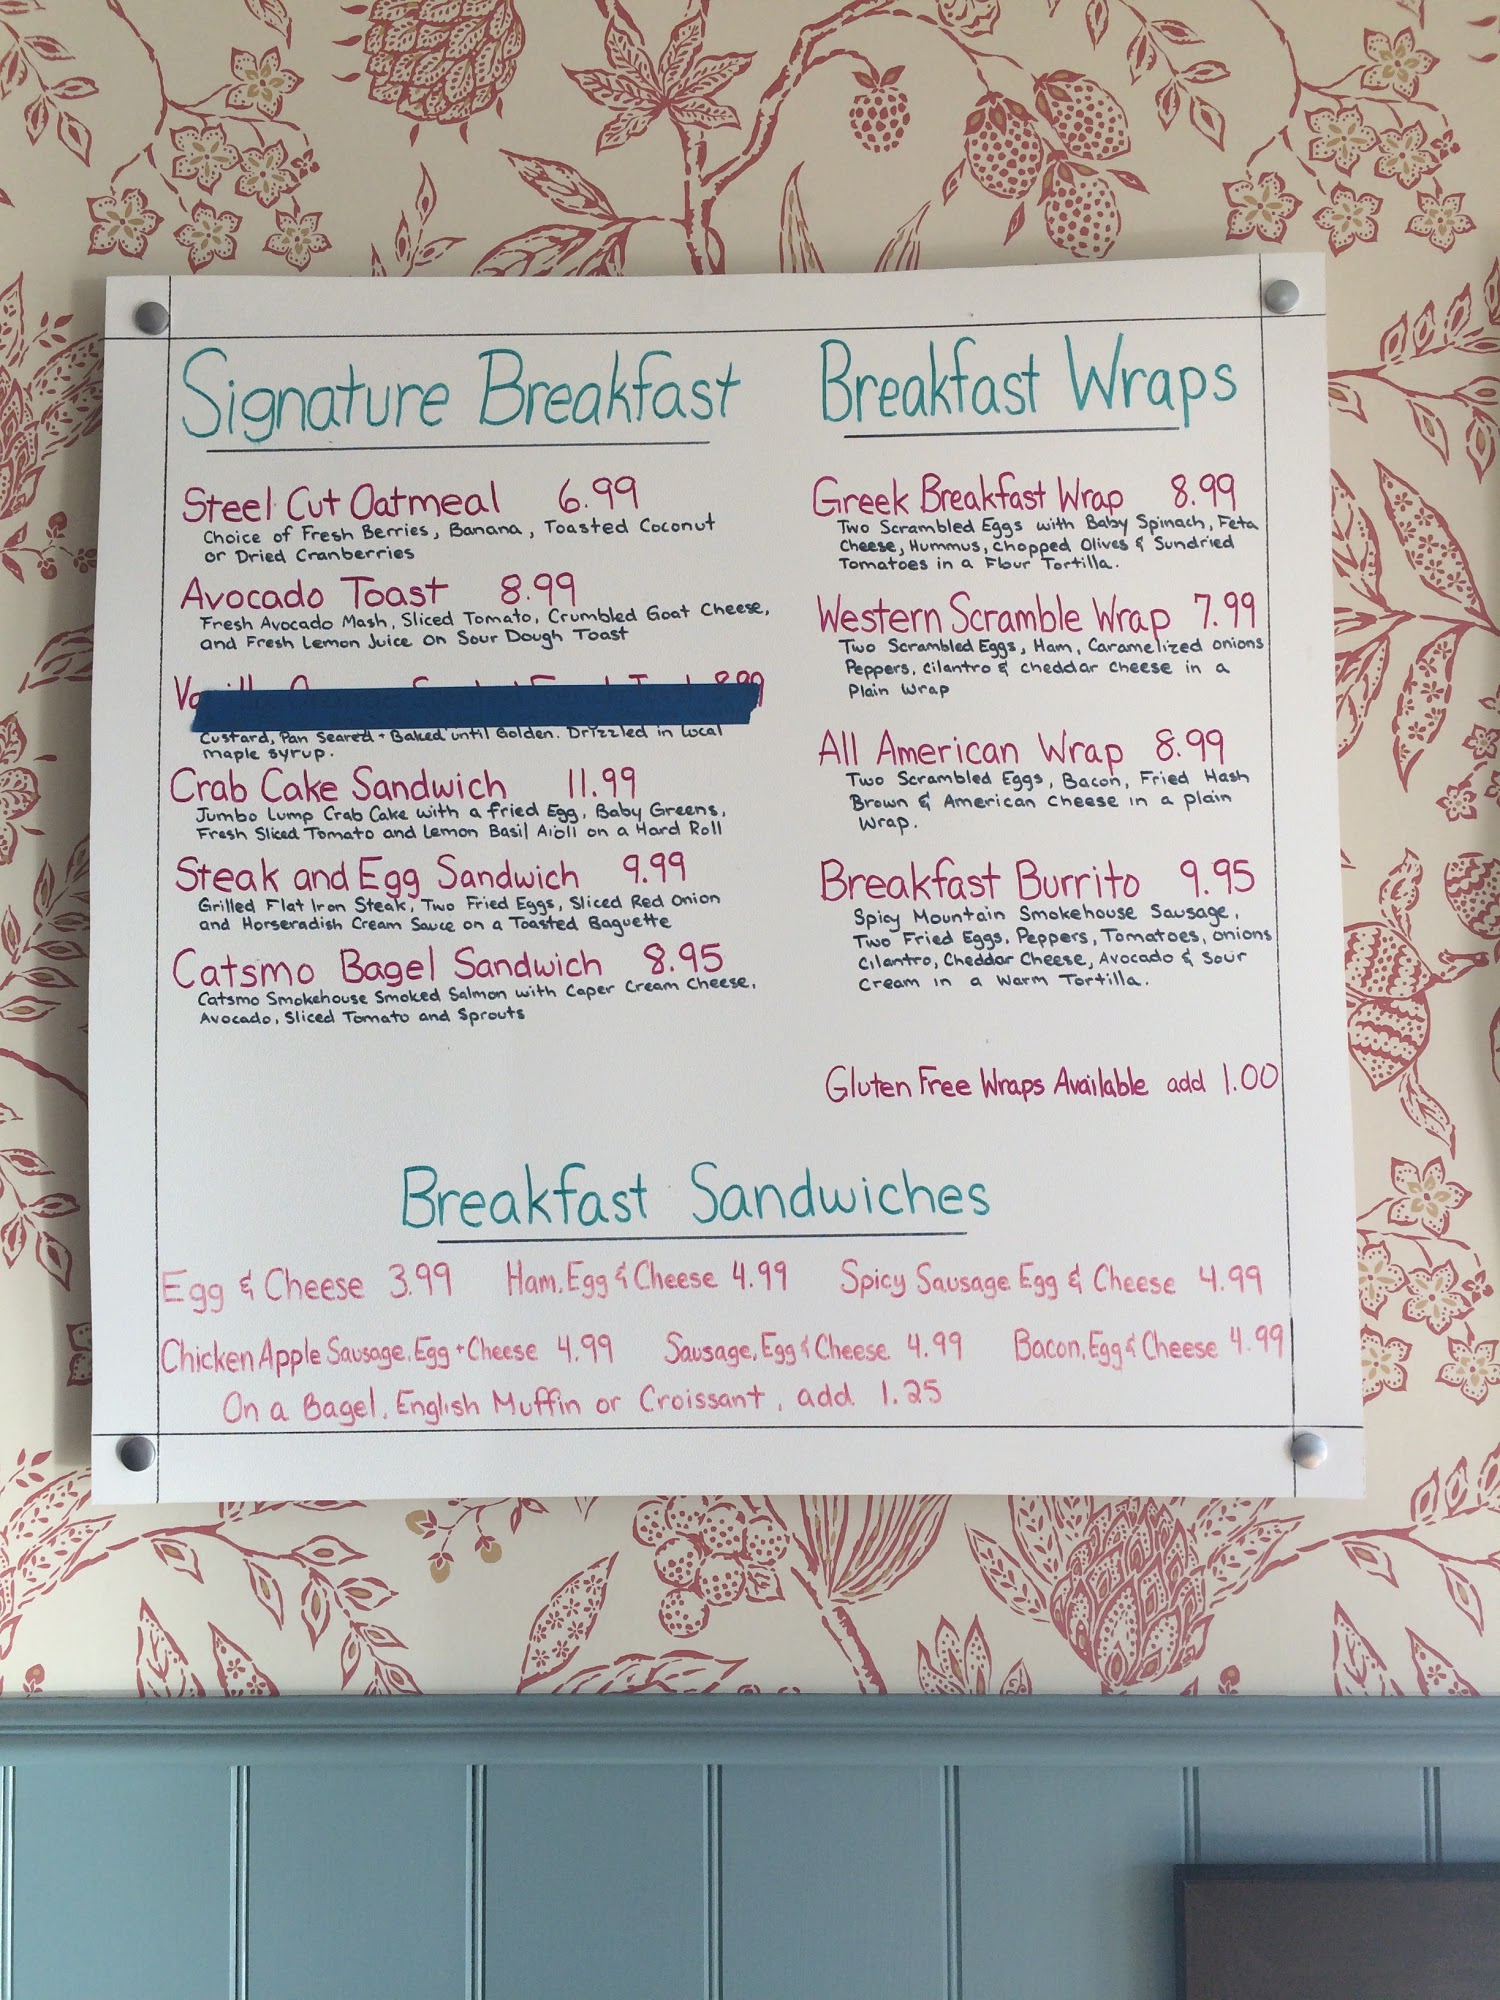 Signature Breakfast
Steel Cut Oatmeal 6.99
Choice of Fresh Berries, Banana, Toasted Coconut
or Dried Cranberries
Avocado Toast 8.99
Fresh Avocado Mash, Sliced Tomato, Crumbled Goat Cheese,
and Fresh Lemon Juice on Sour Dough Toast
8.99
Custard, Pan Seared + Baked until Golden. Drizzled in Local
maple syrup.
Crab Cake Sandwich 11.99
Jumbo Lump Crab Cake with a fried Egg, Baby Greens,
Fresh Sliced Tomato and Lemon Basil Aioli on a Hard Roll
Steak and Egg Sandwich 9.99
Grilled Flat Iron Steak, Two Fried Eggs, Sliced Red Onion
and Horseradish Cream Sauce on a Toasted Baguette
Catsmo Bagel Sandwich 8.95
Catsmo Smokehouse Smoked Salmon with Caper Cream Cheese,
Avocado, Sliced Tomato and Sprouts
Breakfast Wraps
Greek Breakfast Wrap 8.99
Two Scrambled Eggs with Baby Spinach, Feta
Cheese, Hummus, chopped Olives & Sundried
Tomatoes in a Flour Tortilla.
Western Scramble Wrap 7.99
Two Scrambled Eggs, Ham, Caramelized onions
Peppers, cilantro & cheddar cheese in a
Plain Wrap
All American Wrap 8.99
Two Scrambled Eggs, Bacon, Fried Hash
Brown & American Cheese in a plain
Wrap.
Breakfast Burrito 9.95
Spicy Mountain Smokehouse Sausage,
Two Fried Eggs, Peppers, Tomatoes, onions
Cilantro, Cheddar Cheese, Avocado & Sour
Cream in a Warm Tortilla.
Gluten Free Wraps Available add 1.00
Breakfast Sandwiches
Egg & Cheese 3.99 Ham, Egg & Cheese 4.99 Spicy Sausage Egg & Cheese 4.99
Chicken Apple Sausage, Egg + Cheese 4.99 Sausage, Egg & Cheese 4.99 Bacon, Egg & Cheese 4.99
On a Bagel, English Muffin or Croissant, add 1.25